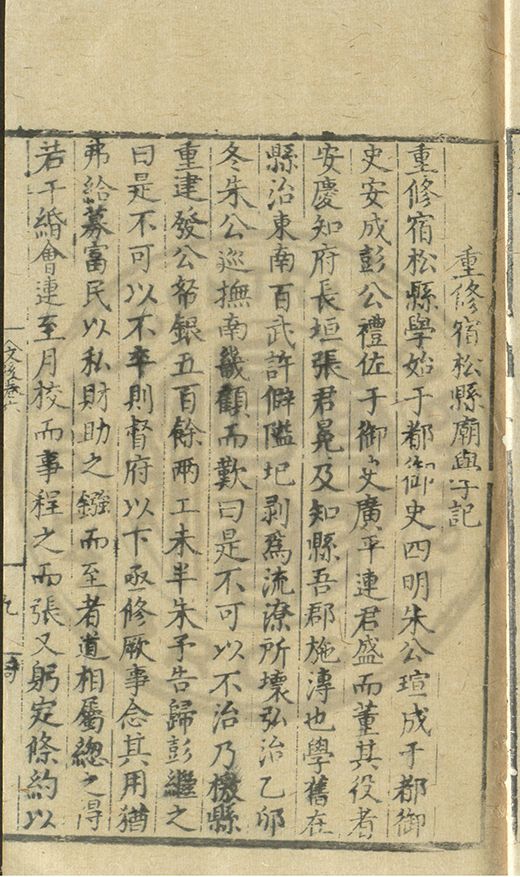 重修宿松縣廟學記
重修宿松縣學始于都御史四明朱公瑄成于都御
史安成彭公禮佐于御史廣平連君盛而董其役者
安慶知府長垣張君晃及知縣吾郡施漙也學舊在
縣治東南百武許僻隘圮剥爲流潦所壞弘治乙卯
冬朱公巡撫南畿顧而歎曰是不可以不治乃檄縣
重建發公帑銀五百餘兩工未半朱予告歸彭繼之
曰是不可以不卒則督府以下亟修厥事念其用猶
弗給募富民以私財助之鏹而至者道相屬總之得
若干緡會連至月校而事程之而張又躬定條約以